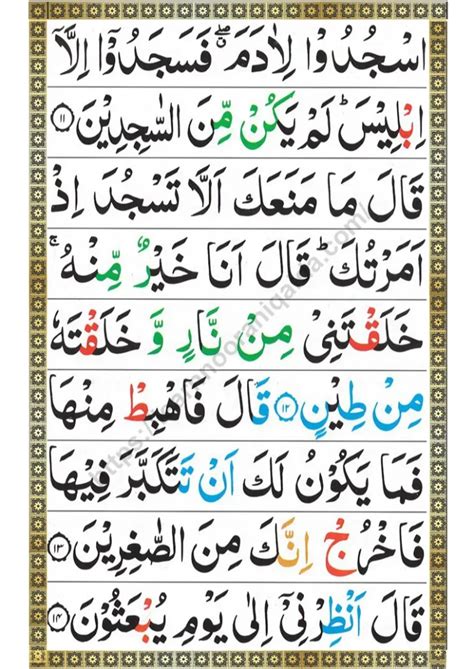 اسْجُدُوْا لِاٰدَمَ ۖۗ فَسَجَدُوْۤا اِلَّاۤ
اِبْلِيْسَ ؕ لَمْ يَكُنْ مِّنَ السّٰجِدِيْنَ ۝۱۱
قَالَ مَا مَنَعَكَ اَلَّا تَسْجُدَ اِذْ
اَمَرْتُكَ ؕ قَالَ اَنَا خَيْرٌ مِّنْهُ ۚ
خَلَقْتَنِىْ مِنْ نَّارٍ وَّ خَلَقْتَهٗ
مِنْ طِيْنٍ ۝۱۲ قَالَ فَاهْبِطْ مِنْهَا
فَمَا يَكُوْنُ لَكَ اَنْ تَتَكَبَّرَ فِيْهَا
فَاخْرُجْ اِنَّكَ مِنَ الصّٰغِرِيْنَ ۝۱۳
قَالَ اَنْظِرْنِىْۤ اِلٰى يَوْمِ يُبْعَثُوْنَ ۝۱۴